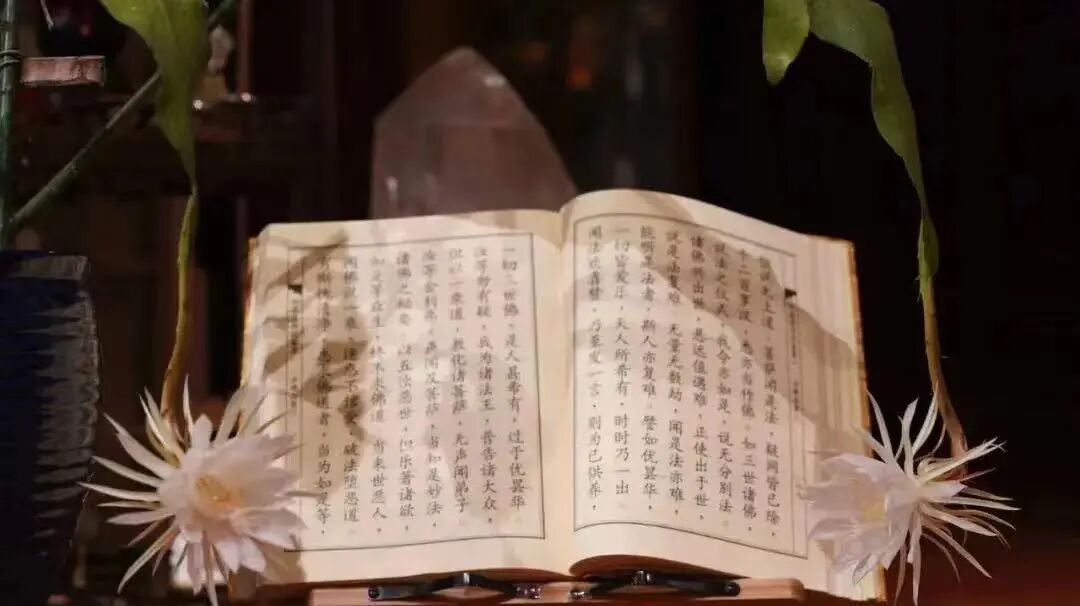 但说无上道，菩萨闻是法，疑网皆已除，
千二百罗汉，悉亦当作佛。如三世诸佛，
说法之仪式，我今亦如是，说无分别法。
诸佛兴出世，悬远值遇难，正使出于世，
说是法复难。无量无数劫，闻是法亦难，
能听是法者，斯人亦复难。譬如优昙华，
一切皆爱乐，天人所希有，时时乃一出。
闻法欢喜赞，乃至发一言，则为已供养，
一切三世佛，是人甚希有，过于优昙华。
汝等勿有疑，我为诸法王，普告诸大众，
但以一乘道，教化诸菩萨，无声闻弟子。
汝等舍利弗，声闻及菩萨，当知是妙法，
诸佛之秘要。以五浊恶世，但乐著诸欲，
如是等众生，终不求佛道。当来世恶人，
闻佛说一乘，迷惑不信受，破法堕恶道。
有惭愧清净，志求佛道者，当为如是等，